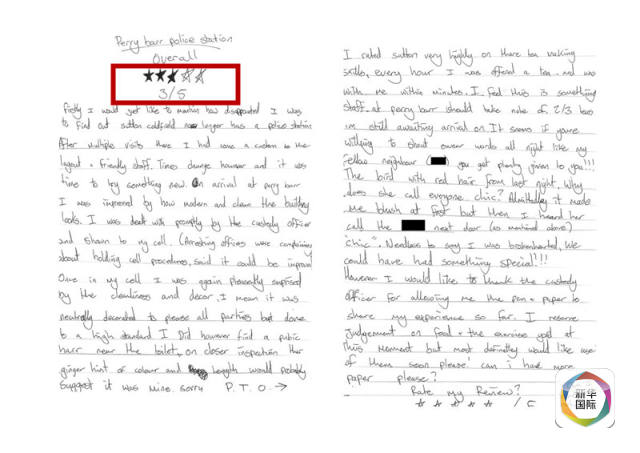 Perry barr police station
Overall
3/5
Firstly I would just like to mention how disappointed I was
to find out sutton coldfield no longer has a police station
After multiple visits there I had come accustom to the
layout & friendly staff. Times change however and it was
time to try something new. On arrival at perry barr
I was impressed by how modern and clean the building
looks. I was dealt with promptly by the custody officer
and shown to my cell. (Arresting officers were complaining
about holding cell procedures, said it could be improved
Once in my cell I was again pleasantly surprised
by the cleanliness and decor. I mean it was
neutrally decorated to please all parties but done
to a high standard I Did however find a pubic
hair near the toilet, on closer inspection the
ginger hint of colour and length would probably
suggest it was mine. sorry P.T.O →
I rated sutton very highly on there tea making
skills, every hour I was offered a tea and was
with me within minutes. I feel this is something
staff at perry barr should take note of. 2/3 teas
im still awaiting arrival on. It seems if youre
willying to shout swear words all night like my
fellow neighbour ( ) you get plenty given to you!!!
The bird with red hair from last night. Why
does she call everyone chic? Admittedly it made
me blush at first but then I heard her
call the next door (as mentiond above)
chic". Needless to say I was brokenhearted, we
could have had something special!!!
However I would like to thank the custody
officer for allowing me the pen & paper to
share my experience so far. I reserve
judgement on food & the exercise yard at
this moment but most definetley would like use
of them soon please. can i have more
paper please?
Rate my Review?
☆ ☆ ☆ ☆ ☆ /5
新华
国际